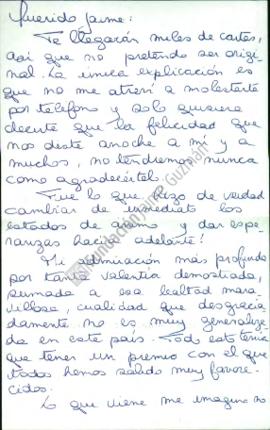 Querido Jaime:
Te llegarán miles de cartas,
así que no pretendo ser origi-
nal. La única explicación es
que no me atreví a molestarte
por teléfono y solo quisiera
decirte que la felicidad que
nos diste anoche a mí y a
muchos, no tendremos nunca
como agradecértelo.
Fue lo que hizo de verdad
cambiar de inmediato los
estados de ánimo y dar espe-
ranzas hacia adelante!
Mi admiración más profunda
por tanta valentía demostrada,
sumada a esa lealtad mara-
villosa, cualidad que desgracia-
damente no es muy generaliza-
da en este país. Todo esto tenía
que tener un premio con el que
todos hemos salido muy favore-
cidos.
Lo que viene me imagino no
Fundación Jaime Guzmán